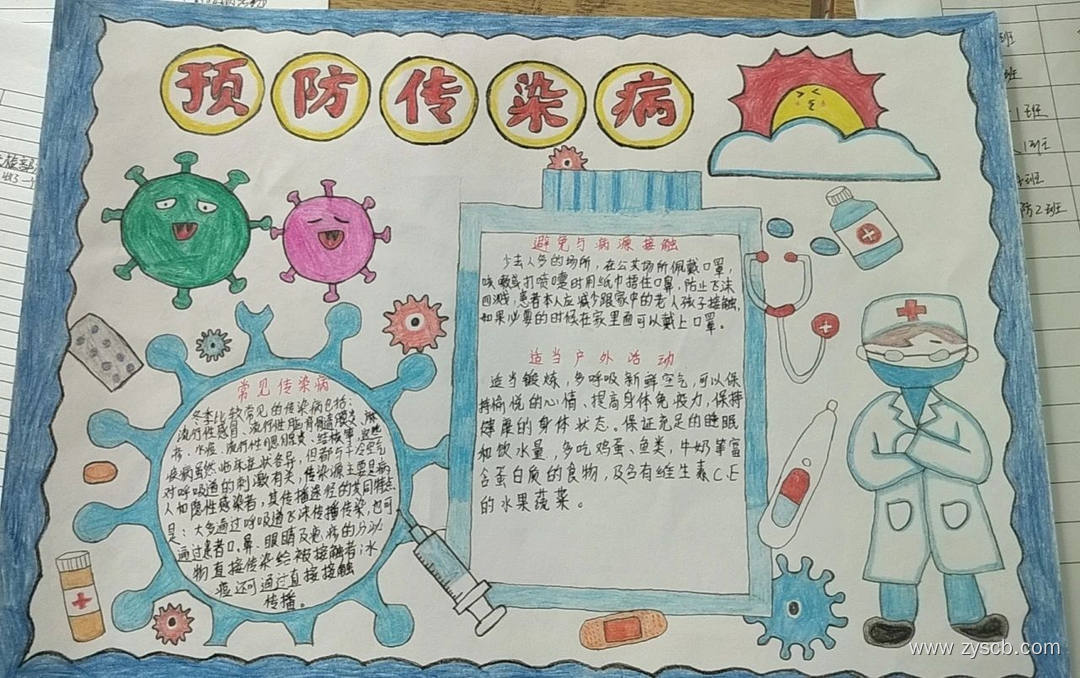 预防传染病
避免与病源接触
少去人多的场所，在公共场所佩戴口罩，
咳嗽或打喷嚏时用纸巾捂住口鼻，防止飞沫
四溅，患者本人应减少跟家中的老人孩子接触，
如果必要的时候在家里面可以戴上口罩。
适当户外活动
适当锻炼，多呼吸新鲜空气，可以保
持愉悦的心情、提高身体免疫力，保持
健康的身体状态。保证充足的睡眠
和饮水量，多吃鸡蛋、鱼类，牛奶等富
含蛋白质的食物，及含有维生素C、E
的水果蔬菜。
常见传染病
冬季比较常见的传染病包括：
流行性感冒、流行性脑脊髓膜炎、
水痘、流行性腮腺炎、结核等，这些
疾病虽然临床症状各异，但都与冷空气
对呼吸道的刺激有关，传染源主要是病
人和隐性感染者，其传播途径的共同特点
是：大多通过呼吸道飞沫传播传染，也可
通过患者口、鼻、眼睛及疱疹的分泌
物直接传染给被接触者；水
痘还可通过直接接触
传播。
1班
1班
防2班
www.zyscb.com